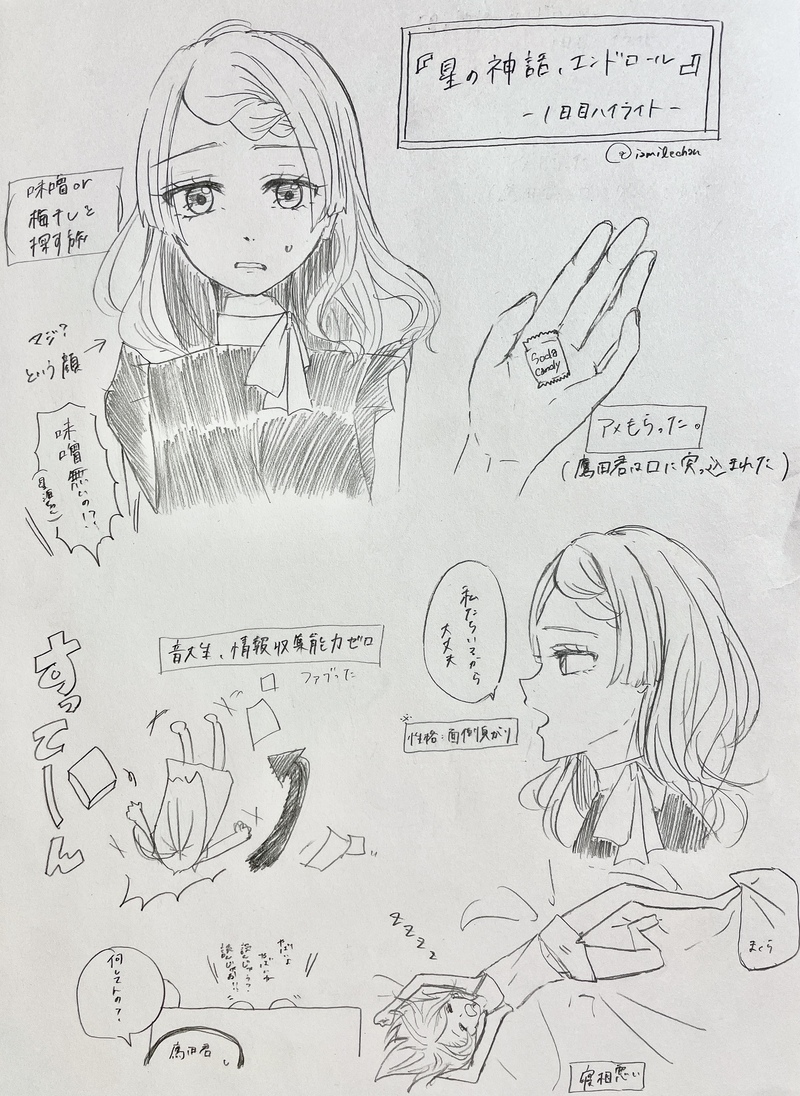 『星の神話、エンドロール』
-1日目ハイライト-
@iamilechan
味噌or
梅干しを
探す旅
マジ?
という顔
味噌無いの!?
Soda
Candy
アメもらった。
(鷹田君は口に突っ込まれた)
私たちいてから
大丈夫
性格:面倒見がり
音大生、情報収集能力ゼロ
ファブった
すってーん
何してんの?
やばいよ
やばいよ
鷹田君
zzzz
まくら
寝相悪い